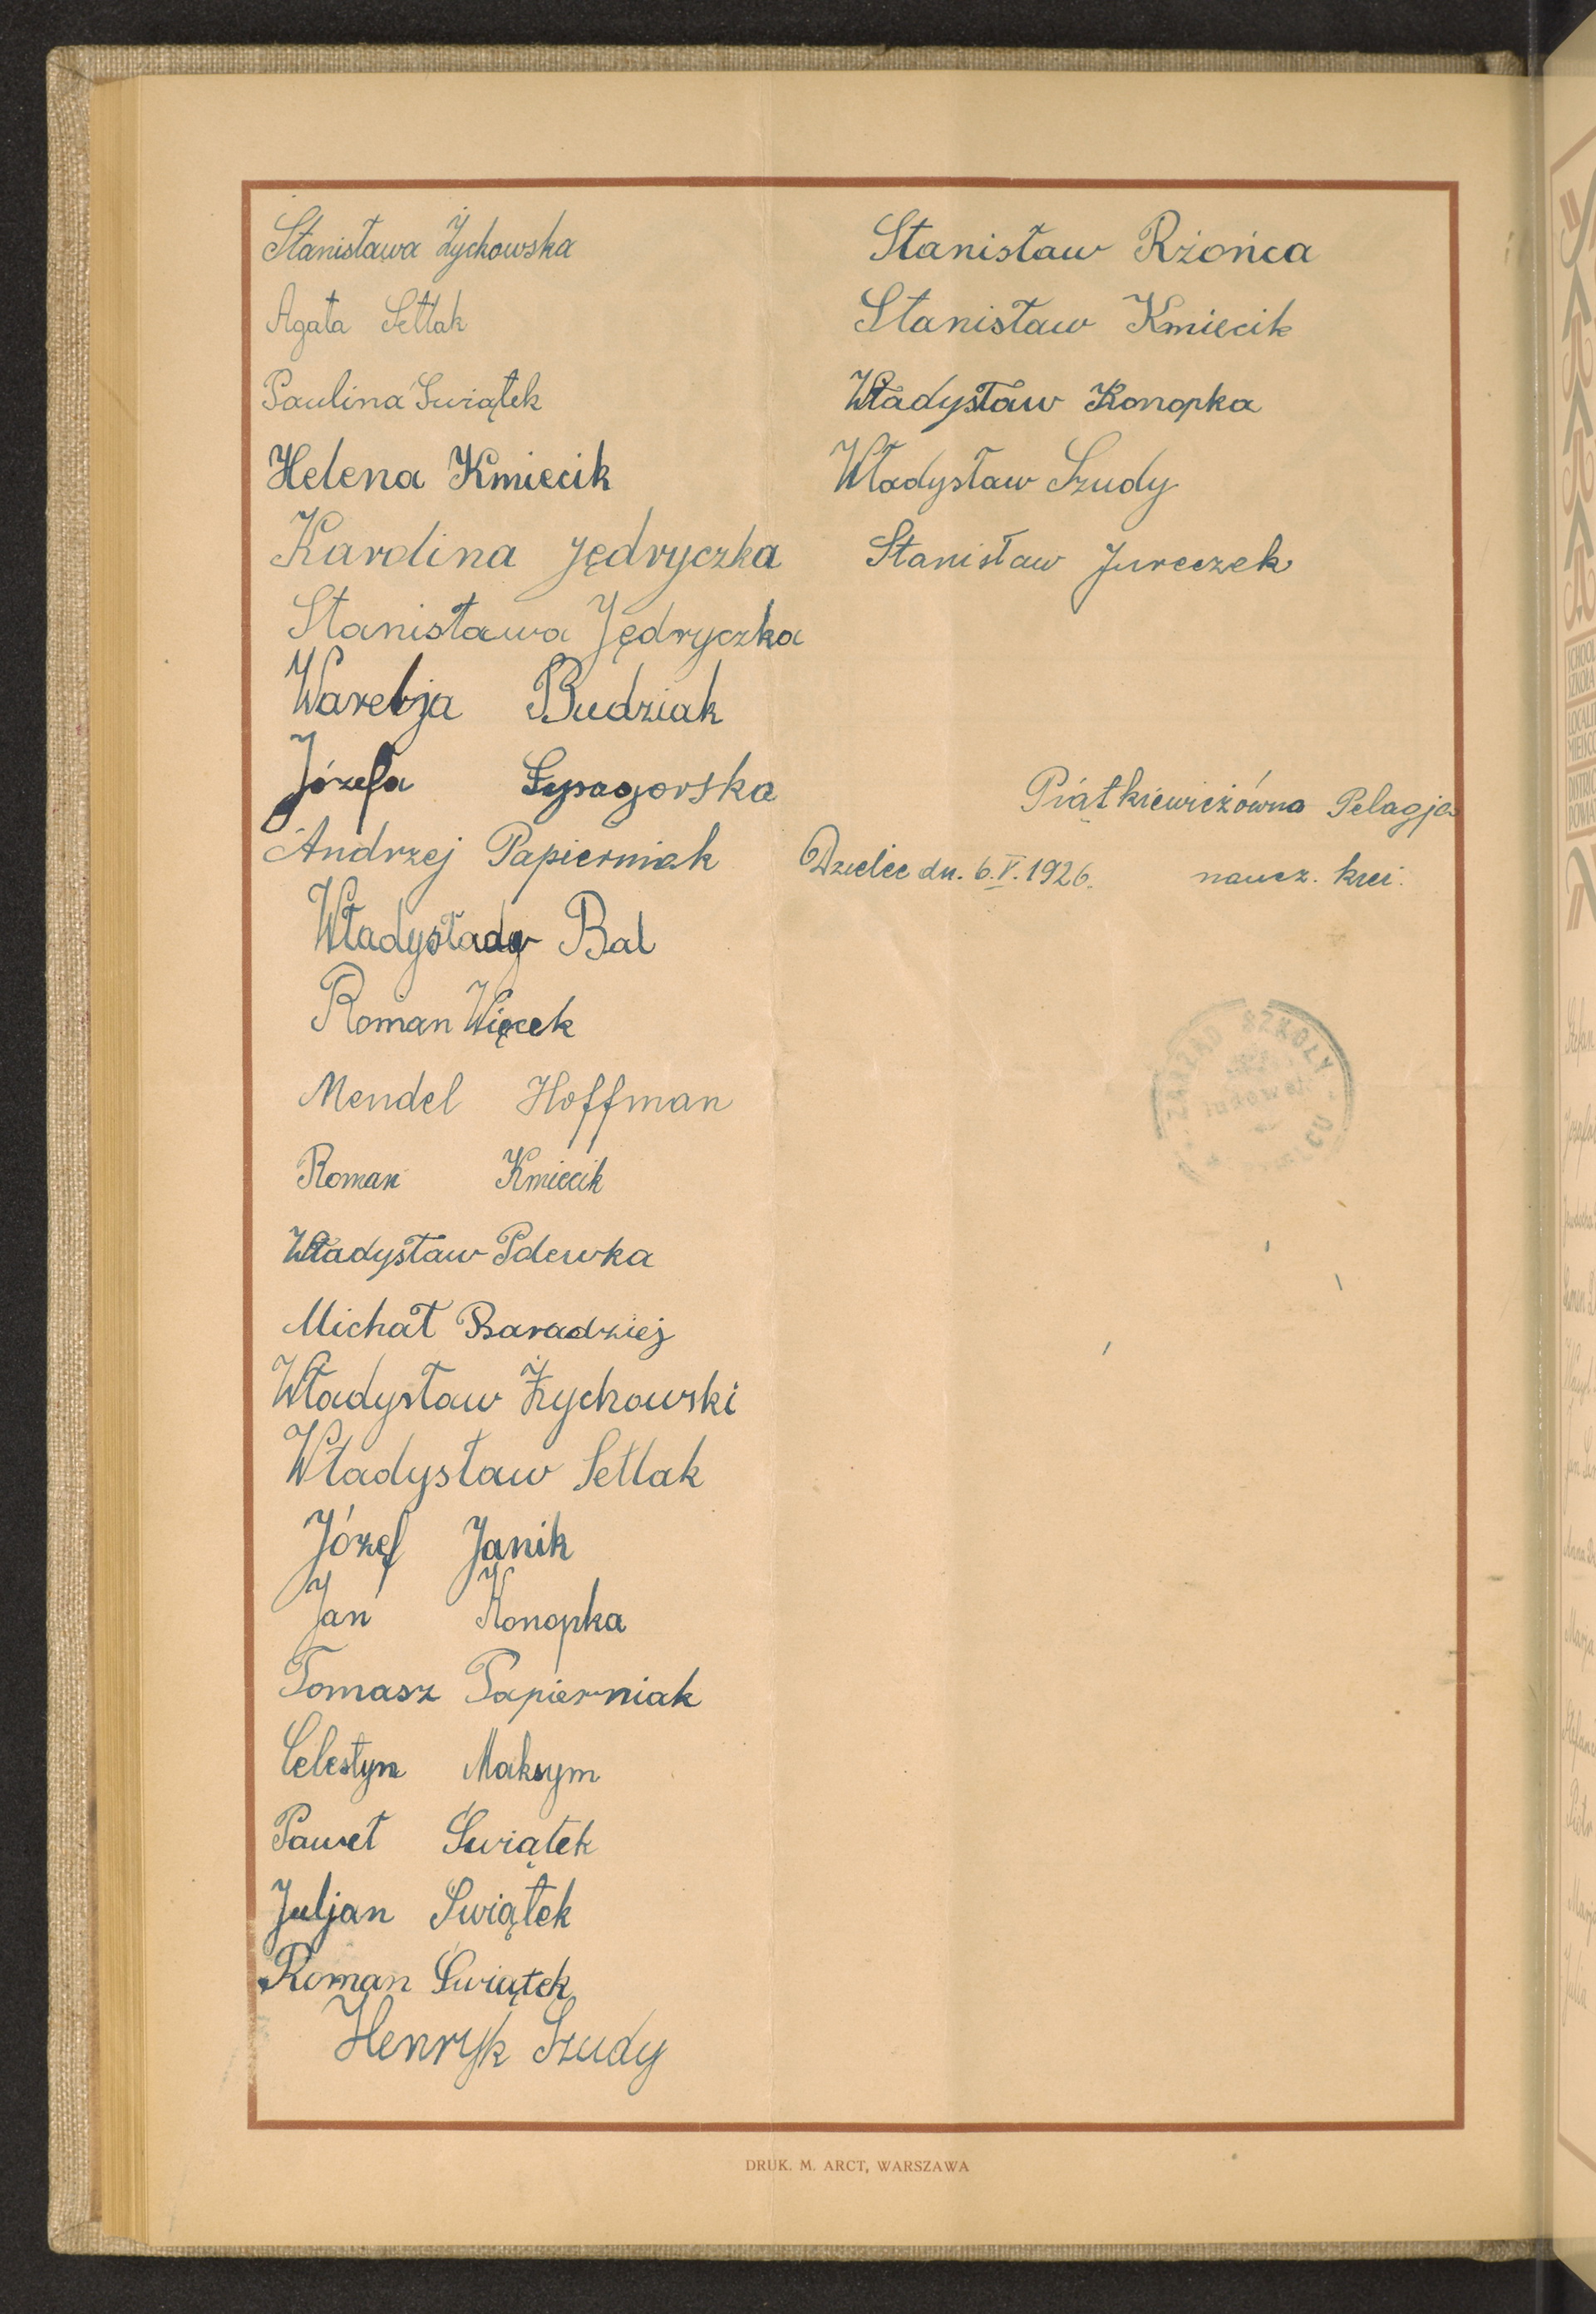 Stanisława Żychowska
Agata Setlak
Paulina Świątek
Helena Kmiecik
Karolina Jędryczka
Stanisława Jędryczka
Warebja Budziak
Józefa Łysagorska
Andrzej Papierniak
Władysław Bal
Roman Więcek
Mendel Hoffman
Roman Kmiecik
Władysław Pdewka
Michał Baradziej
Władysław Żychowski
Władysław Setlak
Józef Janik
Jan Konopka
Tomasz Papierniak
Celestyn Maksym
Paweł Świątek
Juljan Świątek
Roman Świątek
Henryk Szudy
Stanisław Rżońca
Stanisław Kmiecik
Władysław Konopka
Władysław Szudy
Stanisław Jureczek
Piątkiewiczówna Pelagja
Dzielec dn. 6.V.1926. naucz. kier.
ZARZĄD SZKOŁY
DRUK. M. ARCT, WARSZAWA